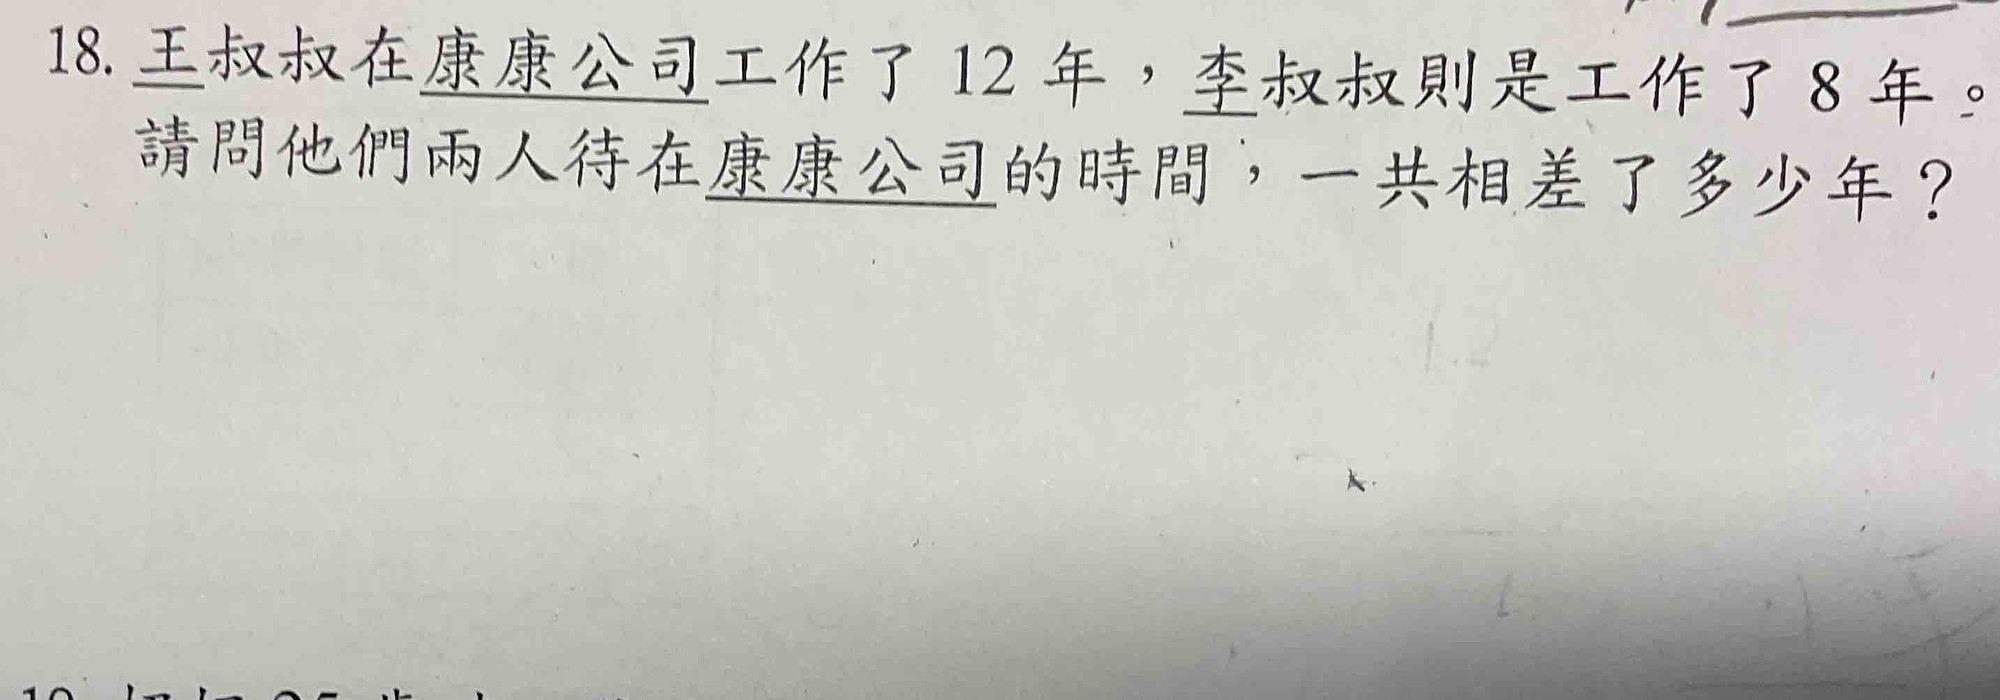 18. 王叔叔在康康公司工作了 12 年，李叔叔則是工作了 8 年。
請問他們兩人待在康康公司的時間，一共相差了多少年？